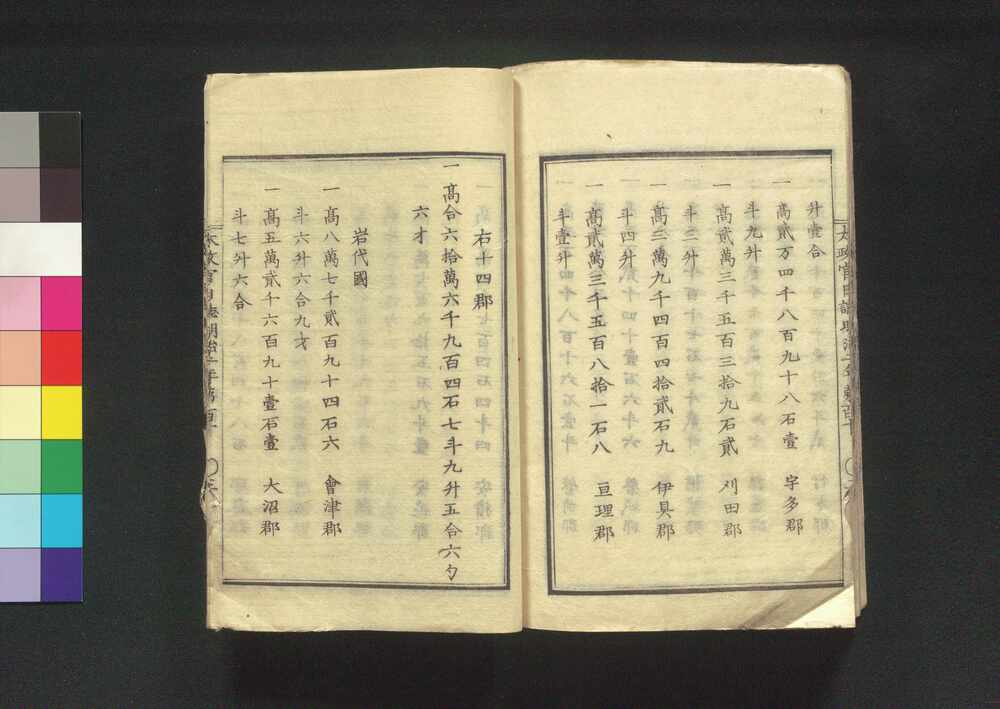 升壹合
一高貳万四千八百九十八石壹　宇多郡
斗九升
一高貳萬三千五百三拾九石貳　刈田郡
斗二升
一高三萬九千四百四拾貳石九　伊具郡
斗四升
一高貳萬三千五百八拾一石八　亘理郡
斗壹升
右十四郡
一高合六拾萬六千九百四石七斗九升五合六勺
六才
岩代國
一高八萬七千貳百九十四石六　會津郡
斗六升六合九才
一高五萬貳千六百九十壹石壹　大沼郡
斗七升六合
太政官日誌明治二年第百十